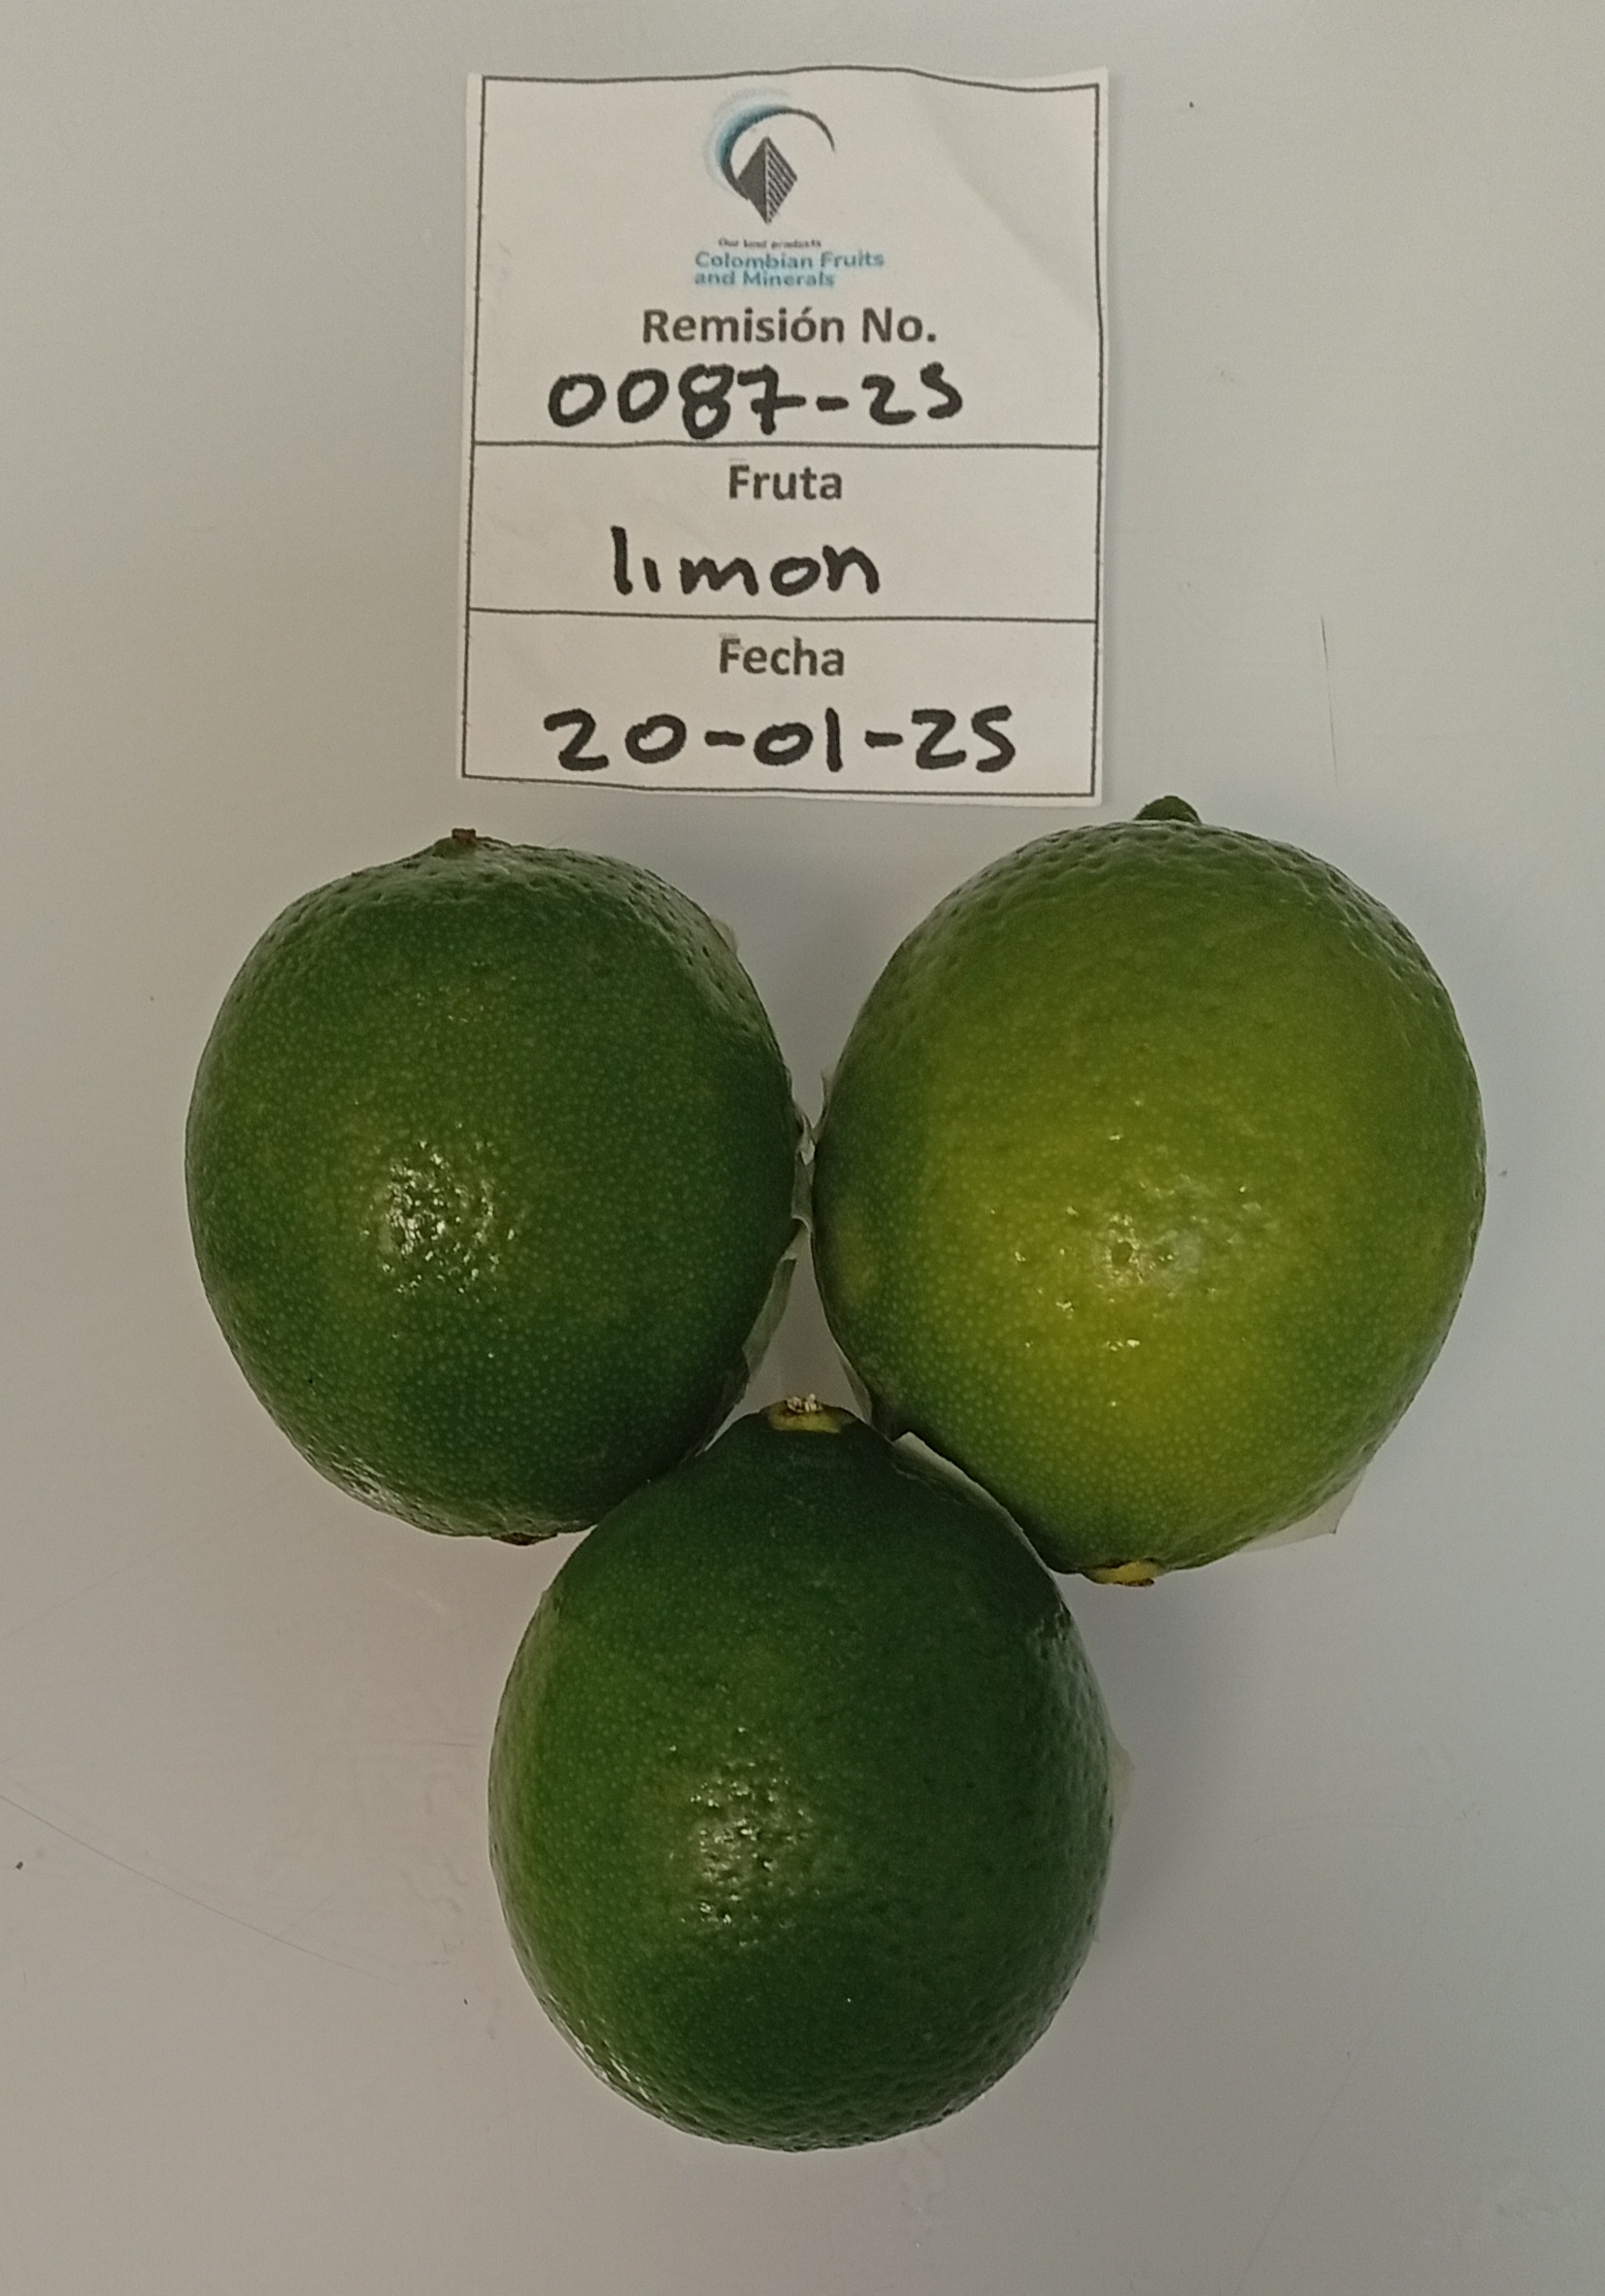 Our best products
Colombian Fruits
and Minerals
Remisión No.
0087-25
Fruta
limon
Fecha
20-01-25